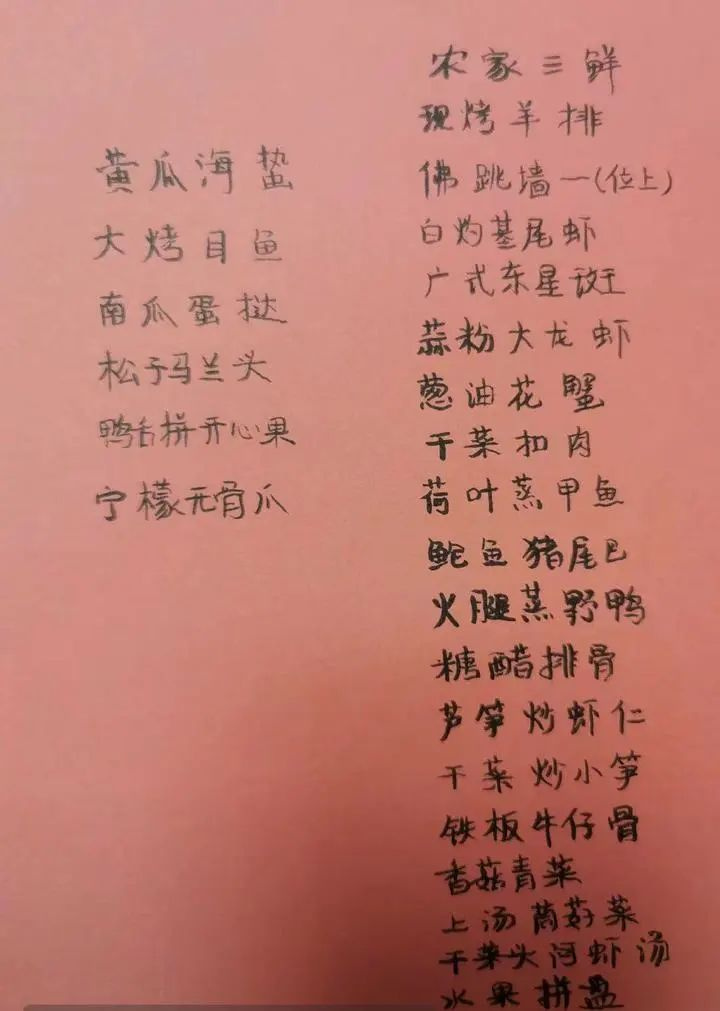 黄瓜海蜇
大烤目鱼
南瓜蛋挞
松子马兰头
鸭舌拼开心果
宁檬无骨爪
农家三鲜
现烤羊排
佛跳墙一(位上)
白灼基尾虾
广式东星斑
蒜粉大龙虾
葱油花蟹
干菜扣肉
荷叶蒸甲鱼
鲍鱼猪尾巴
火腿蒸野鸭
糖醋排骨
芦笋炒虾仁
干菜炒小笋
铁板牛仔骨
香菇青菜
上汤茼蒿菜
干菜头河虾汤
水果拼盘